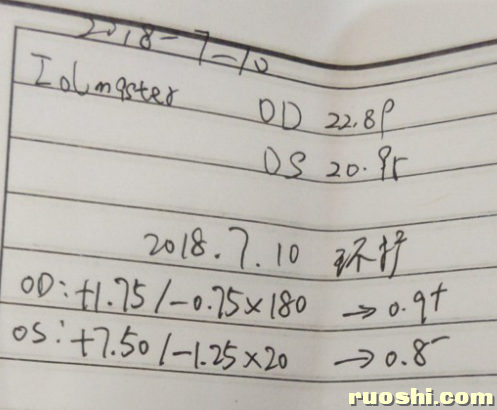 2018-7-10
IOLmaster OD 22.89
OS 20.95
2018.7.10 环扩
OD: +1.75/-0.75×180 → 0.9+
OS: +7.50/-1.25×20 → 0.8-
ruoshi.com